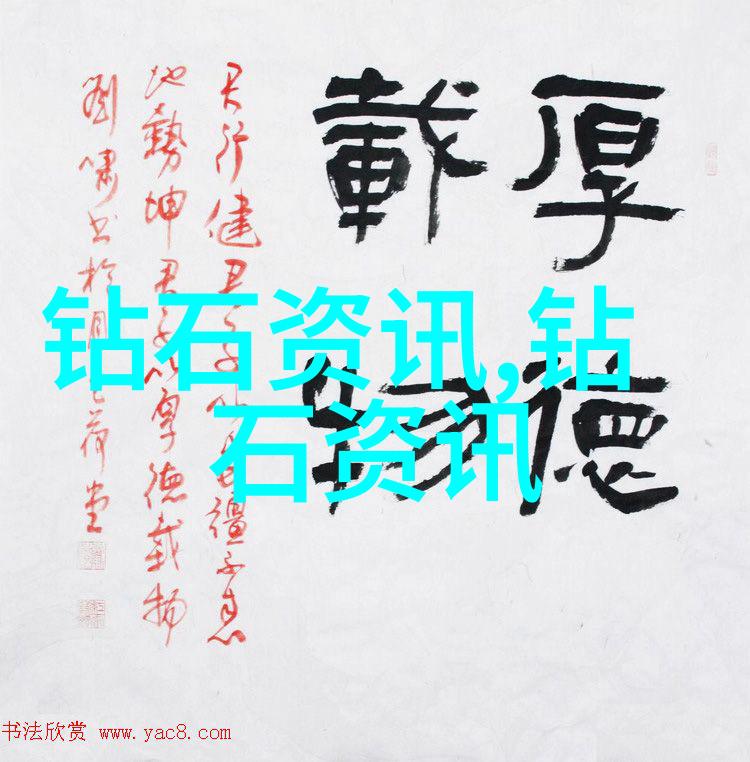 厚德
載物
天行健君子以自彊不息
地勢坤君子以厚德載物
劉嘯书於月荷堂
钻石资讯,钻
石资讯
书法欣赏 www.yac8.com